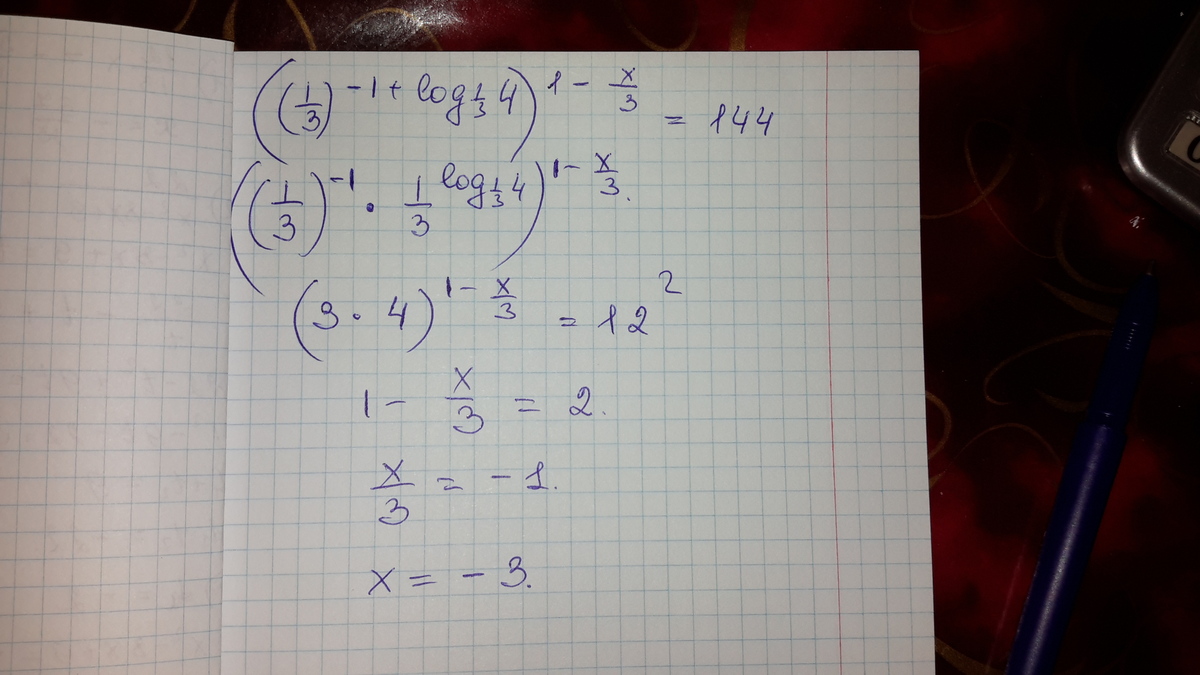 ((1/3)^(-1 + log_(1/3) 4))^(1 - x/3) = 144
((1/3)^(-1) · 1/3^(log_(1/3) 4))^(1 - x/3).
(3 · 4)^(1 - x/3) = 12^2
1 - x/3 = 2.
x/3 = - 1.
x = - 3.